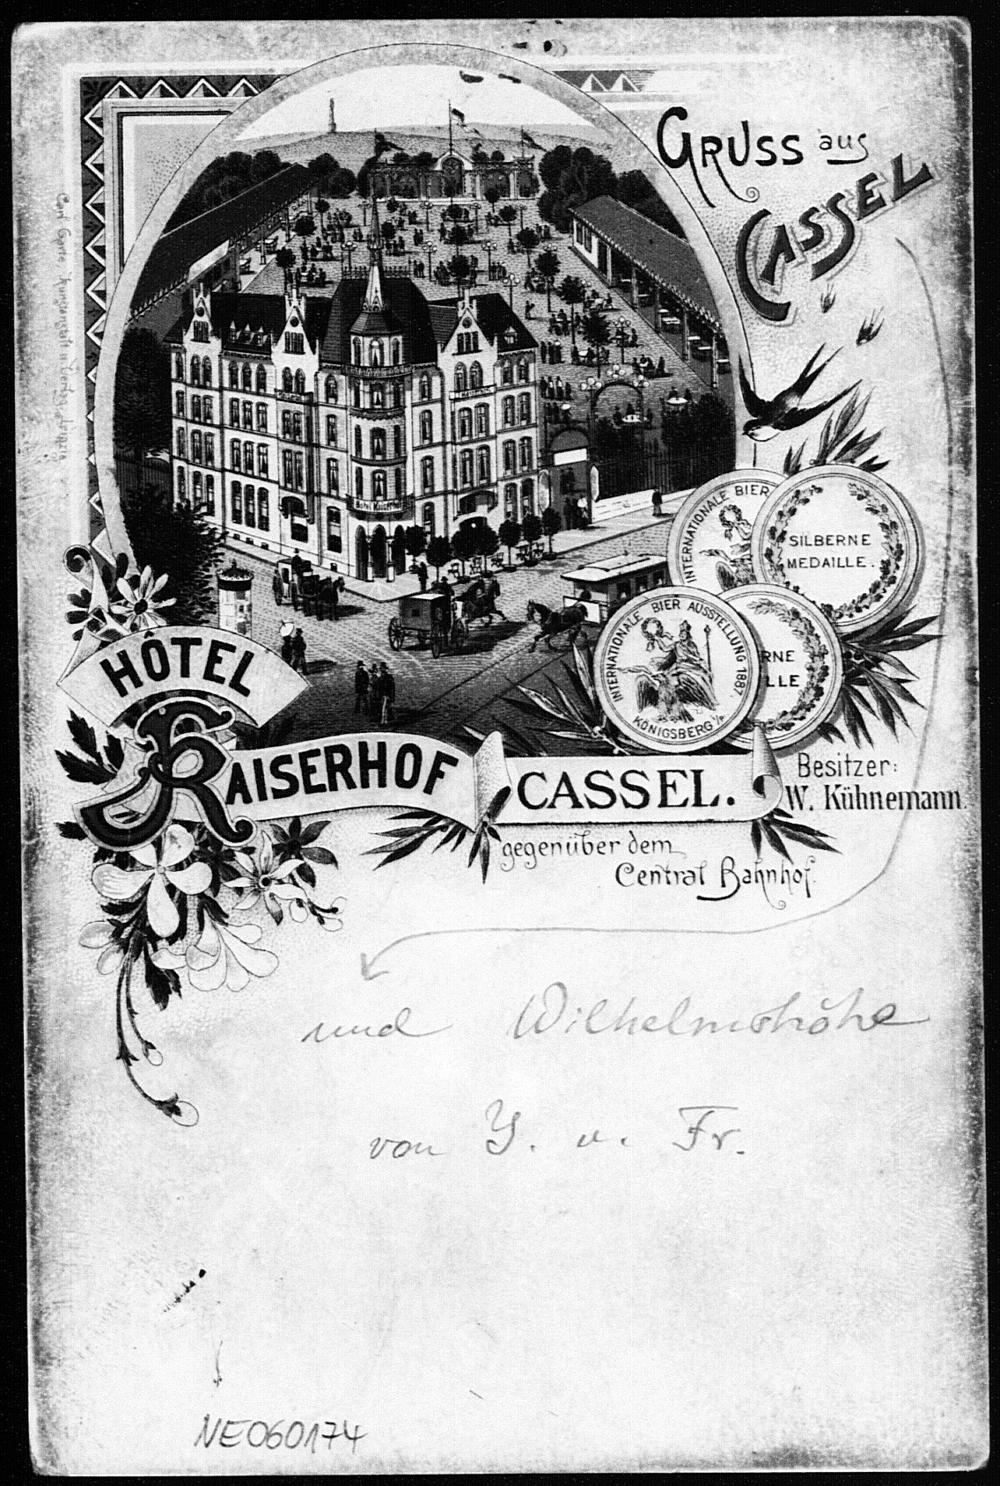 GRUSS aus
CASSEL
INTERNATIONALE BIER
SILBERNE
MEDAILLE.
INTERNATIONALE BIER AUSSTELLUNG 1887.
KÖNIGSBERG i/P
RNE
LLE
Hotel Kaiserhof
HÔTEL
KAISERHOF
CASSEL.
Besitzer:
W. Kühnemann.
gegenüber dem
Central Bahnhof.
und Wilhelmshöhe
von Y. u. Fr.
NE060174